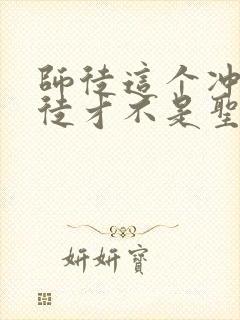 師徒這个冲
徒才不是聖
妍妍寶